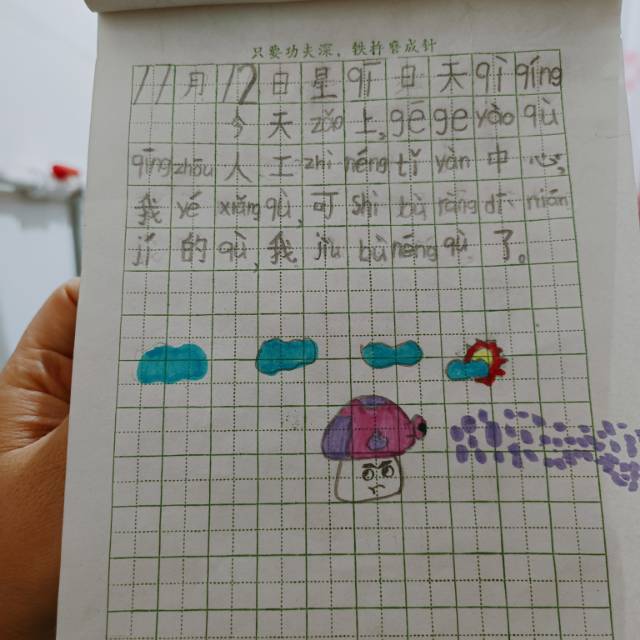 只要功夫深，铁杵磨成针
11月12日星qī日天qì qíng
今天zǎo上,gēge yào qù
qīngzhōu人工zhì néng tǐ yàn中心,
我yě xiǎng qù,可shì bù ràng dī nián
jí的qù,我jiù bù néng qù了。